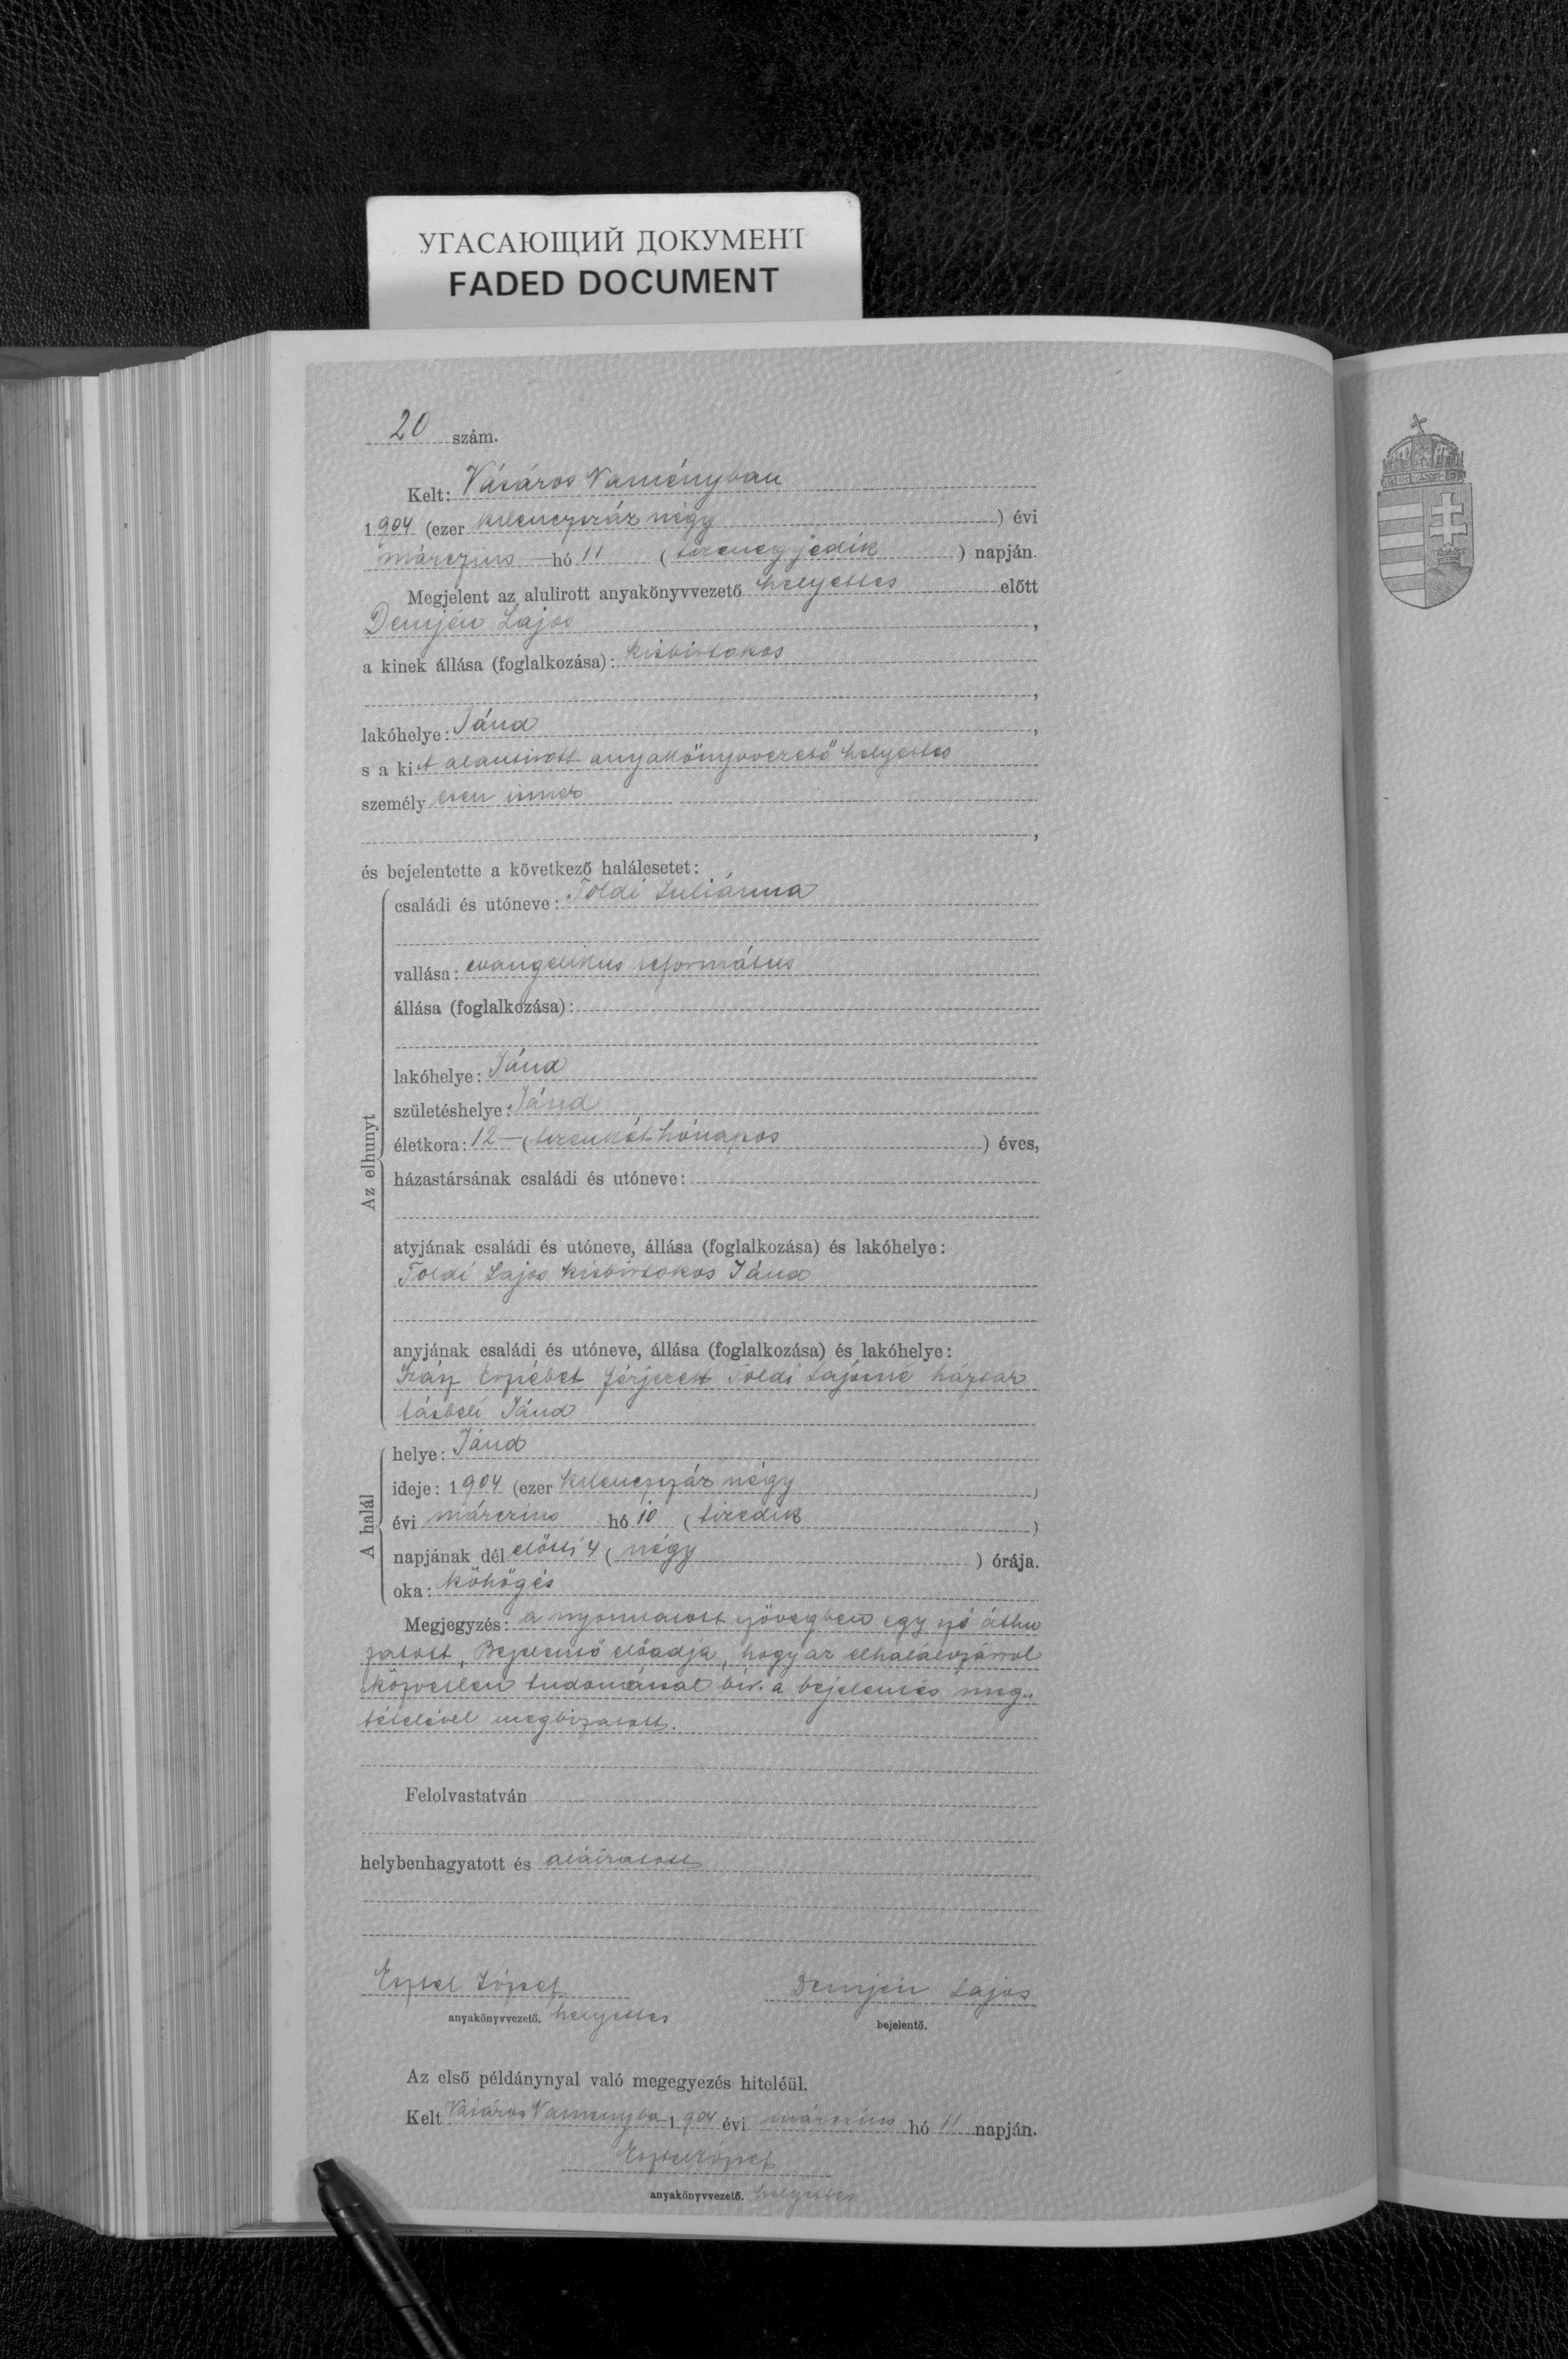 УГАСАЮЩИЙ ДОКУМЕНТ
FADED DOCUMENT
20 szám.
Kelt: Vásáros Naményban
1904 (ezer kilenczszáz négy ) évi
márczius hó 11 ( tizenegyedik ) napján.
Megjelent az alulirott anyakönyvvezető helyettes előtt
Demjén Lajos ,
a kinek állása (foglalkozása): kisbirtokos
,
lakóhelye: Jánd ,
s a kit alantirott anyakönyvvezető helyettes
személyesen ismer
,
és bejelentette a következő halálesetet:
Az elhunyt
családi és utóneve: Toldi Juliánna
vallása: evangelikus református
állása (foglalkozása):
lakóhelye: Jánd
születéshelye: Jánd
életkora: 12 – ( tizenkét hónapos ) éves,
házastársának családi és utóneve:
atyjának családi és utóneve, állása (foglalkozása) és lakóhelye:
Toldi Lajos kisbirtokos Jánd
anyjának családi és utóneve, állása (foglalkozása) és lakóhelye:
Erzsébet férjezett Toldi Lajosné háztar
tásbeli Jánd
A halál
helye: Jánd
ideje: 1904 (ezer kilenczszáz négy )
évi márczius hó 10 ( tizedik )
napjának dél előtti 4 ( négy ) órája.
oka: köhögés
Megjegyzés: a nyomtatott szövegben egy szó áthu
zatott, Bejelentő előadja, hogy az elhalálozásról
közvetlen tudomással bir. a bejelentés meg„
tételével megbizatott.
Felolvastatván
helybenhagyatott és aláíratott
József Demjén Lajos
anyakönyvvezető. helyettes bejelentő.
Az első példánynyal való megegyezés hiteléül.
Kelt Vásáros Naményba 1904 évi márczius hó 11 napján.
József
anyakönyvvezető. helyettes